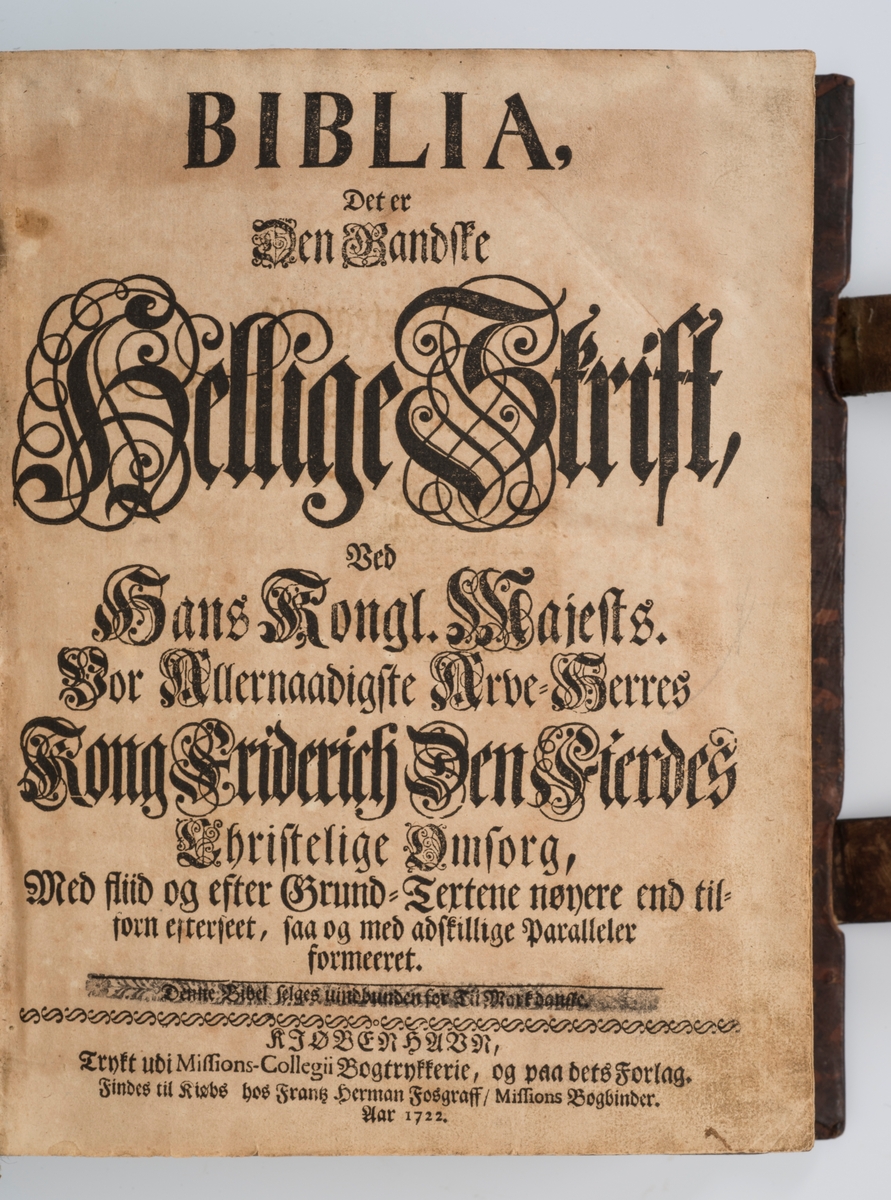 BIBLIA,
Det er
Den Gandske
Hellige Skrift,
Ved
Hans Kongl. Majests.
Vor Allernaadigste Arve-Herres
Kong Friderich Den Fierdes
Christelige Omsorg,
Med fliid og efter Grund-Textene nøyere end til-
forn efterseet, saa og med adskillige Paralleler
formeeret.
Denne Bibel selges uindbunden for Ti Mark danske.
KIØBENHAVN,
Trykt udi Missions-Collegii Bogtrykkerie, og paa dets Forlag.
Findes til Kiøbs hos Frantz Herman Fosgraff/ Missions Bogbinder.
Aar 1722.